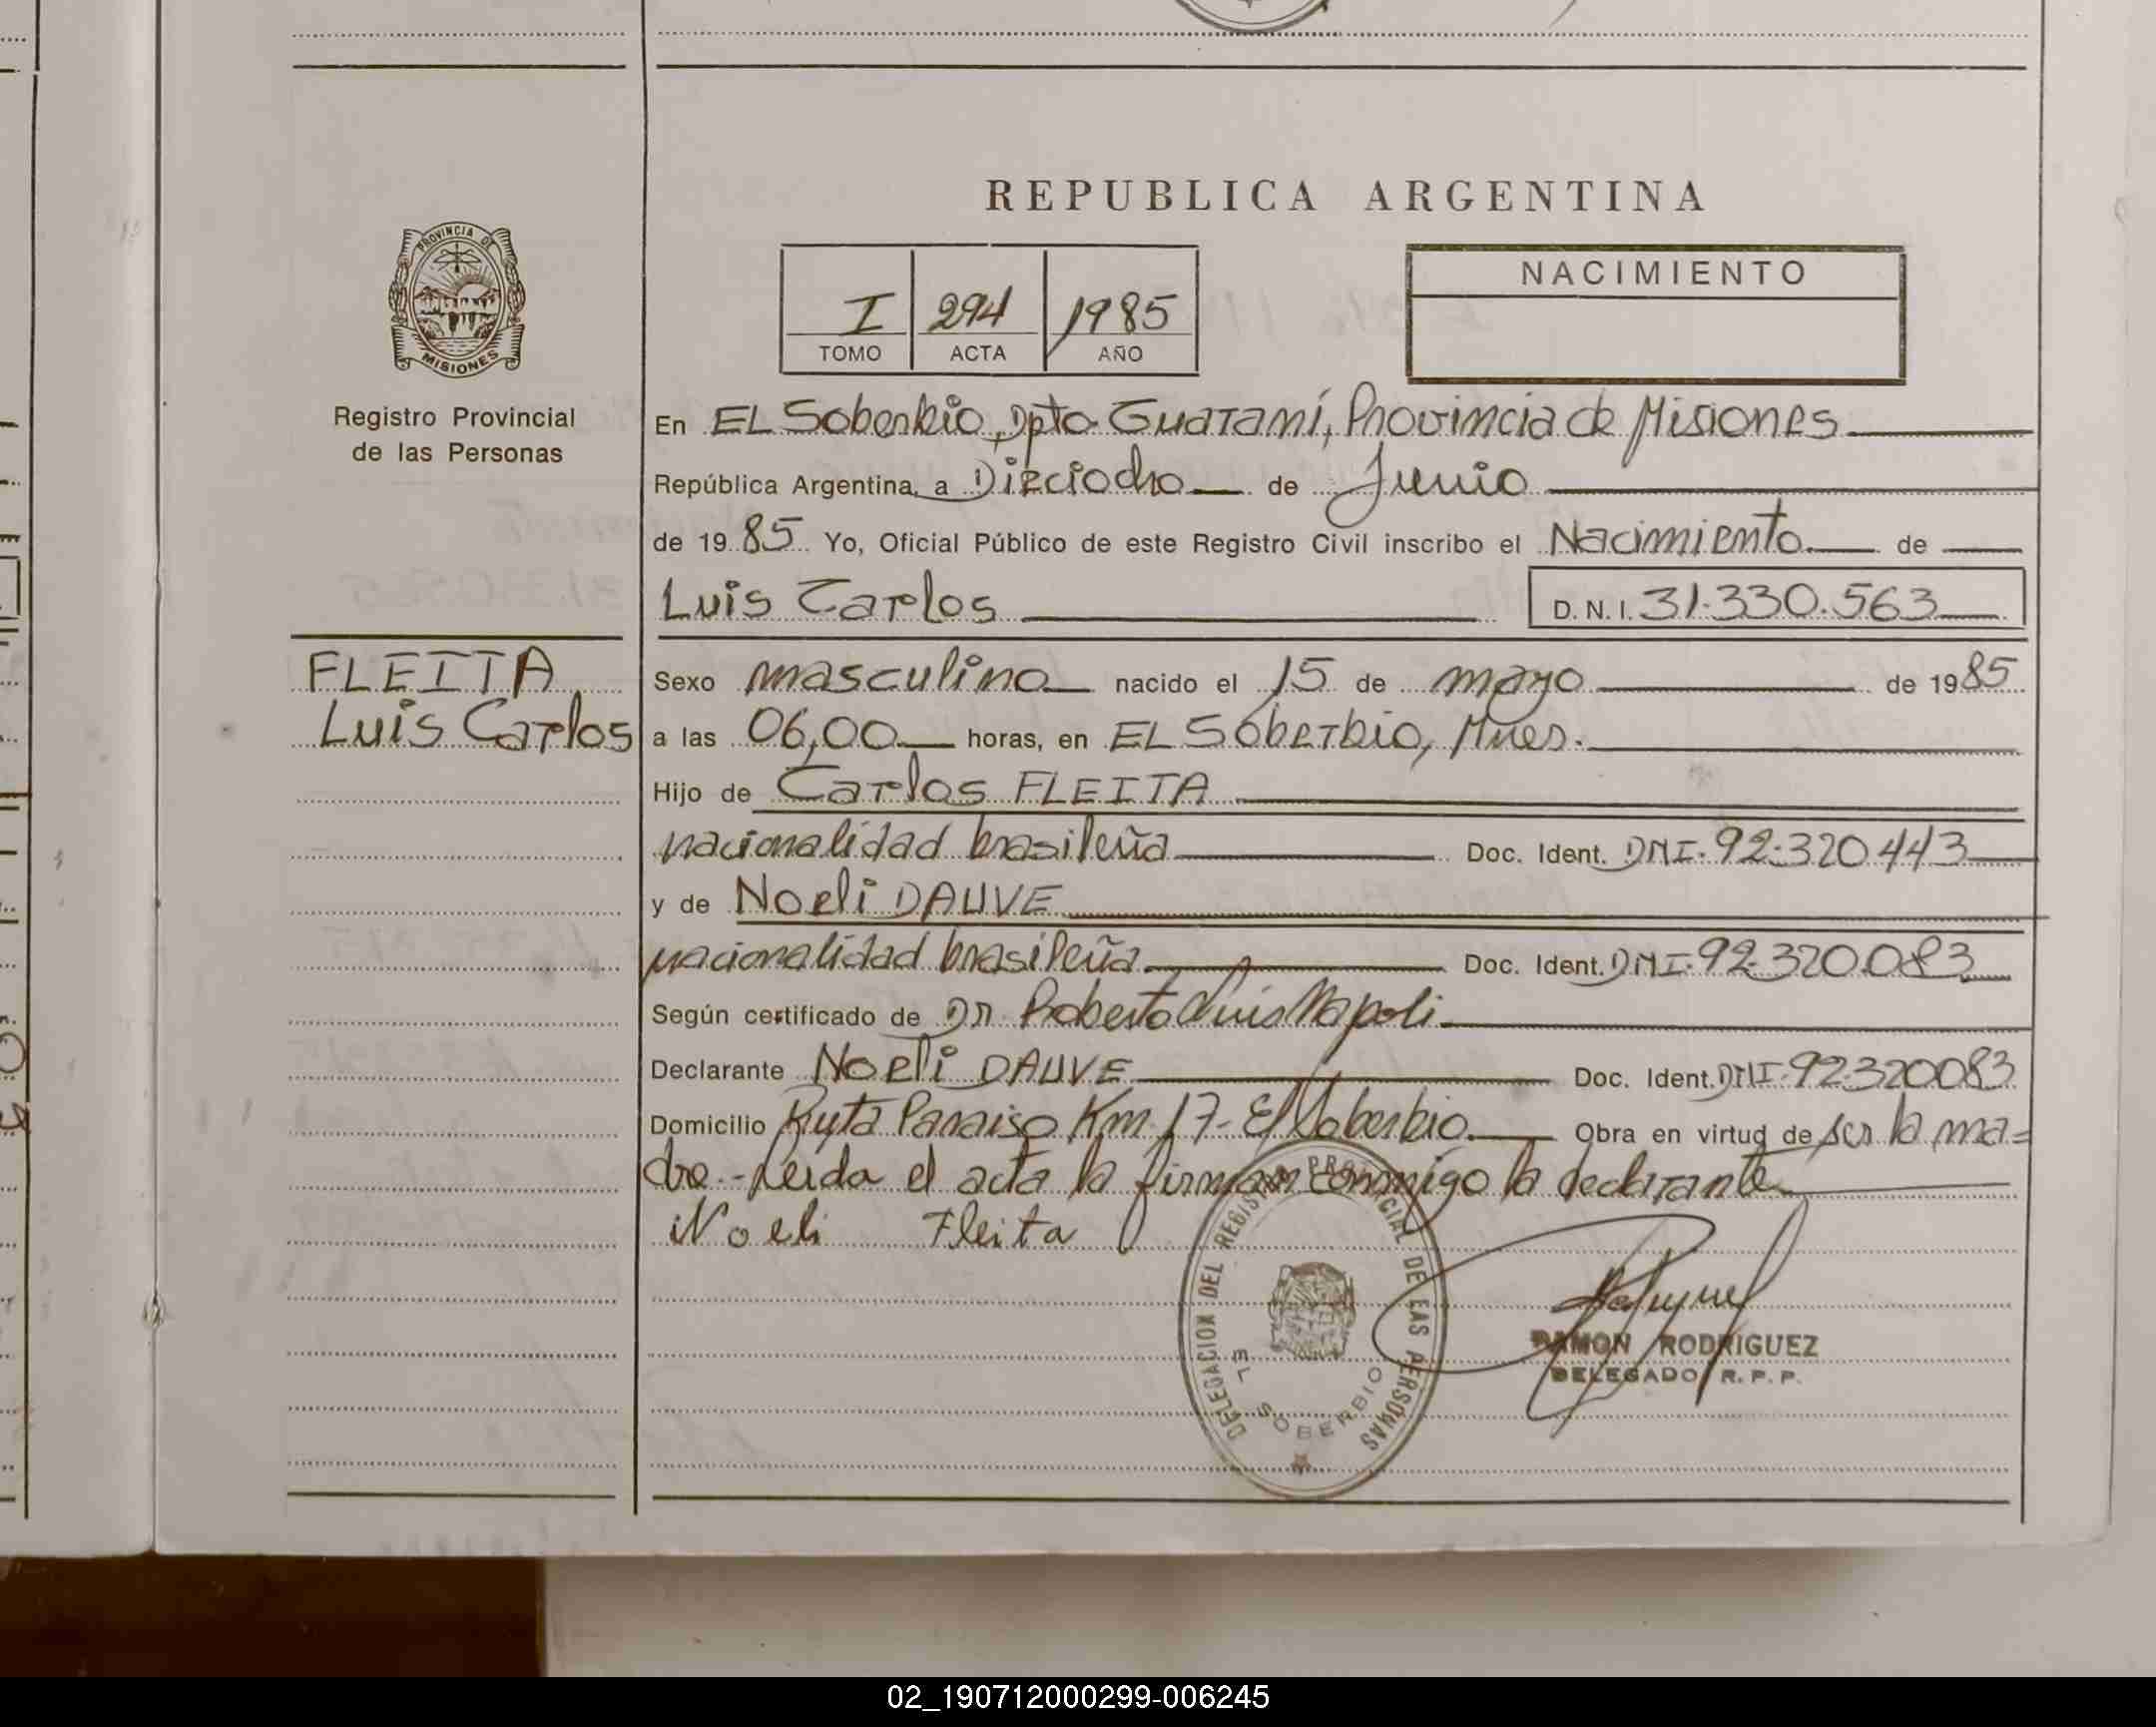 REPUBLICA ARGENTINA
PROVINCIA DE
MISIONES
Registro Provincial
de las Personas
I 294 1985
TOMO ACTA AÑO
NACIMIENTO
En EL Soberbio, Dpto Guaraní, Provincia de Misiones
República Argentina, a Dieciocho de Junio
de 1985 Yo, Oficial Público de este Registro Civil inscribo el Nacimiento de
Luis Carlos D. N. I. 31.330.563
FLEITA
Luis Carlos
Sexo masculino nacido el 15 de mayo de 1985
a las 06,00 horas, en EL Soberbio, Mnes.
Hijo de Carlos FLEITA
nacionalidad brasileña Doc. Ident. DNI. 92.320.443
y de Noeli DAUVE
nacionalidad brasileña Doc. Ident. DNI. 92.320.083
Según certificado de Dr Roberto Luis Napoli
Declarante Noeli DAUVE Doc. Ident. DNI. 92320083
Domicilio Ruta Paraiso Km. 17- El Soberbio. Obra en virtud de ser la ma=
dre.- Leida el acta la firman conmigo la declarante
Noeli Fleita
DELEGACION DEL REGISTRO PROVINCIAL DE LAS PERSONAS
EL SOBERBIO
RAMON RODRIGUEZ
DELEGADO R. P. P.
02_190712000299-006245